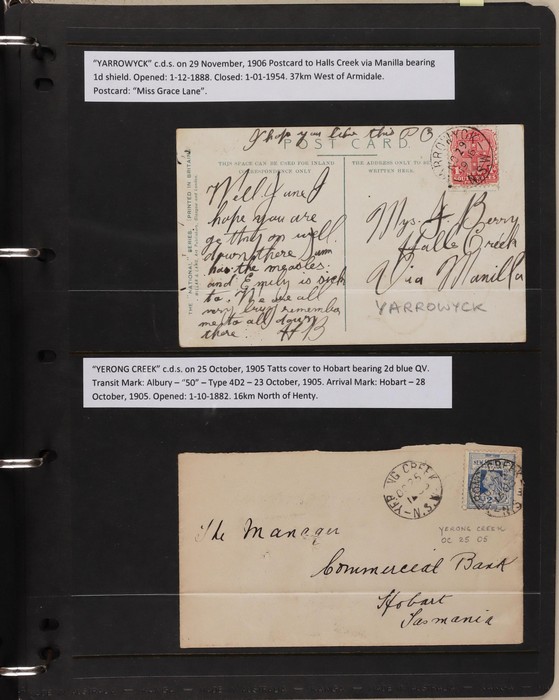 "YARROWYCK" c.d.s. on 29 November, 1906 Postcard to Halls Creek via Manilla bearing
1d shield. Opened: 1-12-1888. Closed: 1-01-1954. 37km West of Armidale.
Postcard: "Miss Grace Lane".
I hope you like this P C
POST CARD.
THIS SPACE CAN BE USED FOR INLAND
CORRESPONDENCE ONLY
THE ADDRESS ONLY TO BE
WRITTEN HERE.
THE "NATIONAL" SERIES
PRINTED IN BRITAIN
Well June I
hope you are
getting on well
down there Jum
has the measles.
and Emily is sick
to. We are all
very busy remember
me to all down
there. H B
Mrs. A. Berry
Halls Creek
Via Manilla
YARROWYCK
"YERONG CREEK" c.d.s. on 25 October, 1905 Tatts cover to Hobart bearing 2d blue QV.
Transit Mark: Albury – "50" – Type 4D2 – 23 October, 1905. Arrival Mark: Hobart – 28
October, 1905. Opened: 1-10-1882. 16km North of Henty.
YERONG CREEK
OC 25
N.S.W
YERONG CREEK
OC 25 05
The Manager
Commercial Bank
Hobart
Tasmania